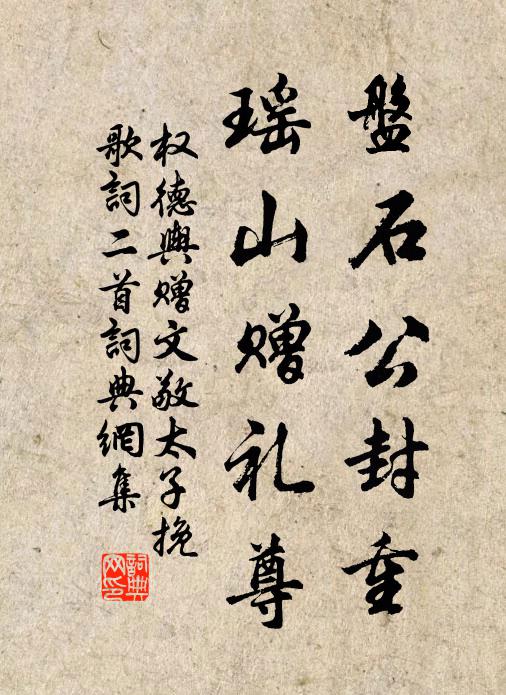 盤石公封重
瑶山赠礼尊
权德與赠文敬太子挽
歌詞二首詞典網集
詞典
网印